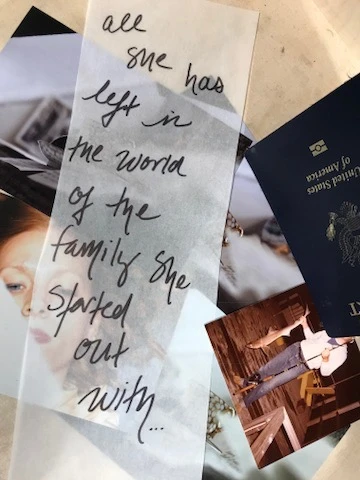 all
she has
left in
the world
of the
family she
started
out
with...
United States
of America